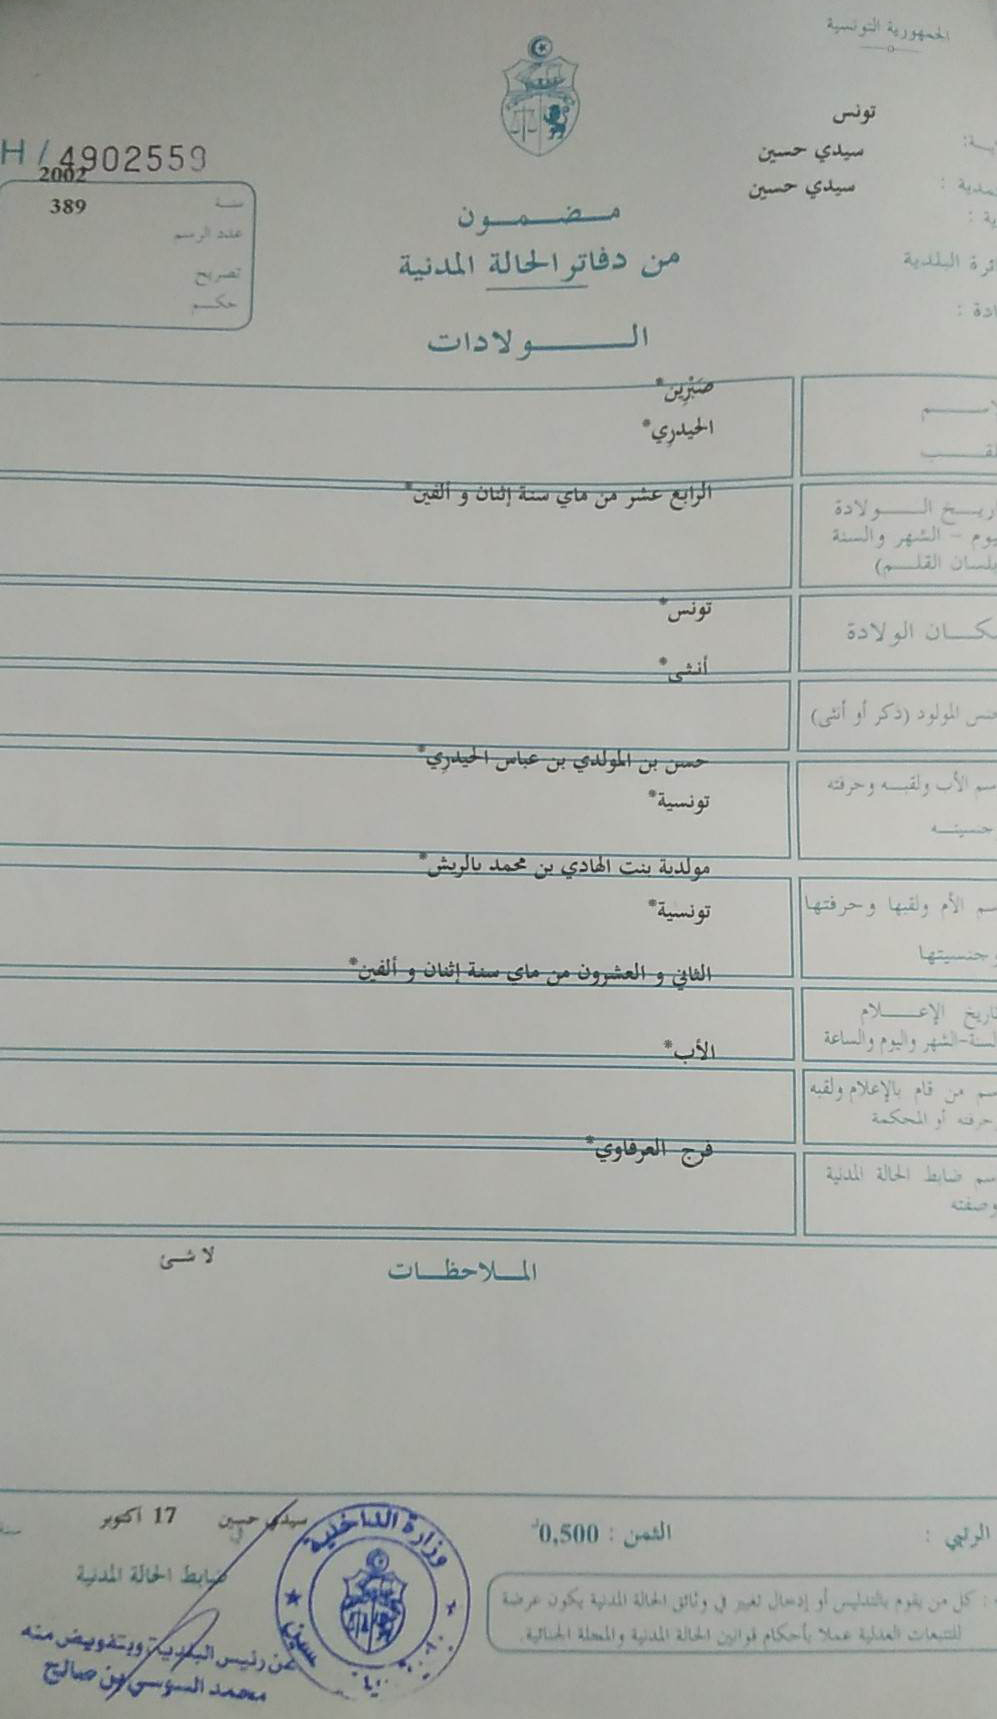 الجمهورية التونسية
تونس
سيدي حسين
سيدي حسين
H / 4902559
2002
سنة
389
عدد الرسم
تصريح
حكم
مضمون
من دفاتر الحالة المدنية
الولادات
صَبْرِين*
الحيدرِي*
الرابع عشر من ماي سنة إثنان و ألفين*
ريخ الولادة
يوم - الشهر والسنة
بلسان القلم)
تونس*
كان الولادة
أنثى*
نس المولود (ذكر أو أنثى)
حسن بن المولدي بن عباس الحيدرِي*
سم الأب ولقبه وحرفته
تونسية*
جنسيته
مولدية بنت الهادي بن محمد بالريش*
سم الأم ولقبها وحرفتها
تونسية*
وجنسيتها
الثاني و العشرون من ماي سنة إثنان و ألفين*
اريخ الإعلام
لسنة-الشهر واليوم والساعة
الأب*
سم من قام بالإعلام ولقبه
حرفته أو المحكمة
فرج العرفاوي*
سم ضابط الحالة المدنية
وصفته
الملاحظات
لا شئ
الثمن : 0,500
سيدي حسين في 17 أكتوبر
ضابط الحالة المدنية
كل من يقوم بالتدليس أو إدخال تغيير في وثائق الحالة المدنية يكون عرضة
للتتبعات العدلية عملا بأحكام قوانين الحالة المدنية والمجلة الجنائية.
وزارة الداخلية
حسين
عن رئيس البلدية وبتفويض منه
محمد السوسي بن صالح